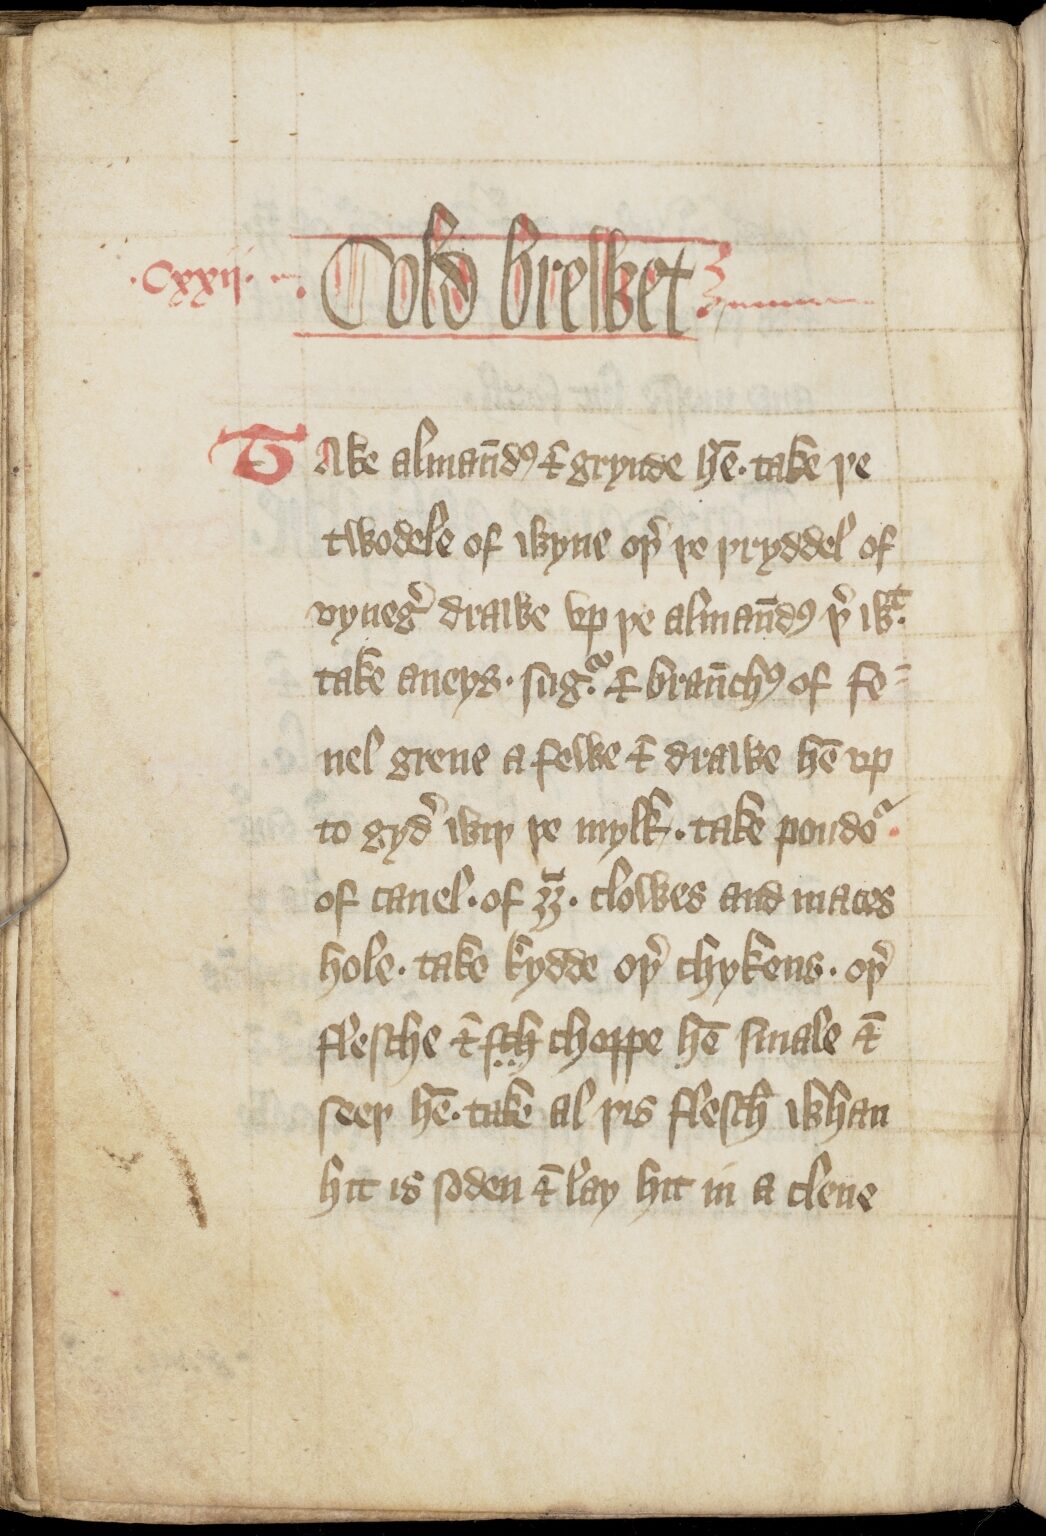 .Cxxij. Cold brewet
TAke almau̅dꝰ & grynde he̅. take þe
twodele of wyne oþ͛ þe þryddel of
vyneg͛ drawe vp þe almau̅dꝰ þ͛ wᵗ.
take aneys. sug.ᵃ & brau̅chꝰ of fe=
nel grene a fewe & drawe he̅ vp
to gyd͛ wiþ þe mylk. take poudoᷣ.
of canel. of gȝ̅. clowes and maces
hole. take kydde oþ͛ chykens. oþ͛
flesche & sch choppe he̅ smale &
seeþ he̅. take al þis flesch whan
hit is soden & lay hit in a clene